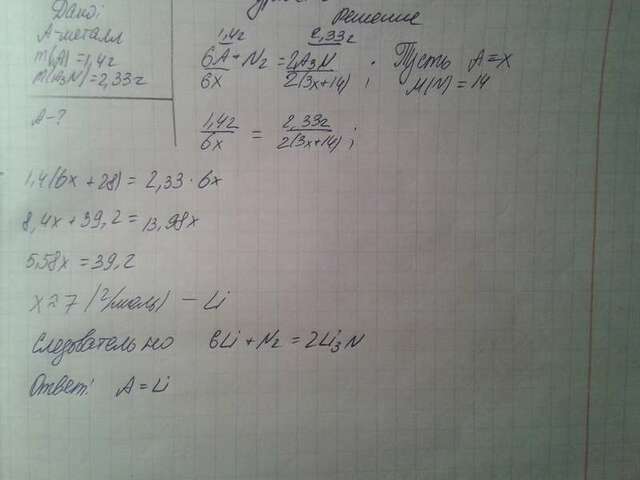 Дано:
А-металл
m(A)=1,4г
m(A3N)=2,33г
А-?
Решение
1,4г 2,33г
6A + N2 = 2A3N . Пусть A=x
6x 2(3x+14) ; M(N)=14
1,4г = 2,33г
6x 2(3x+14) ;
1,4(6x+28) = 2,33·6x
8,4x+39,2=13,98x
5,58x=39,2
x≈7 (г/моль) – Li
Следовательно 6Li + N2 = 2Li3N
Ответ: A=Li